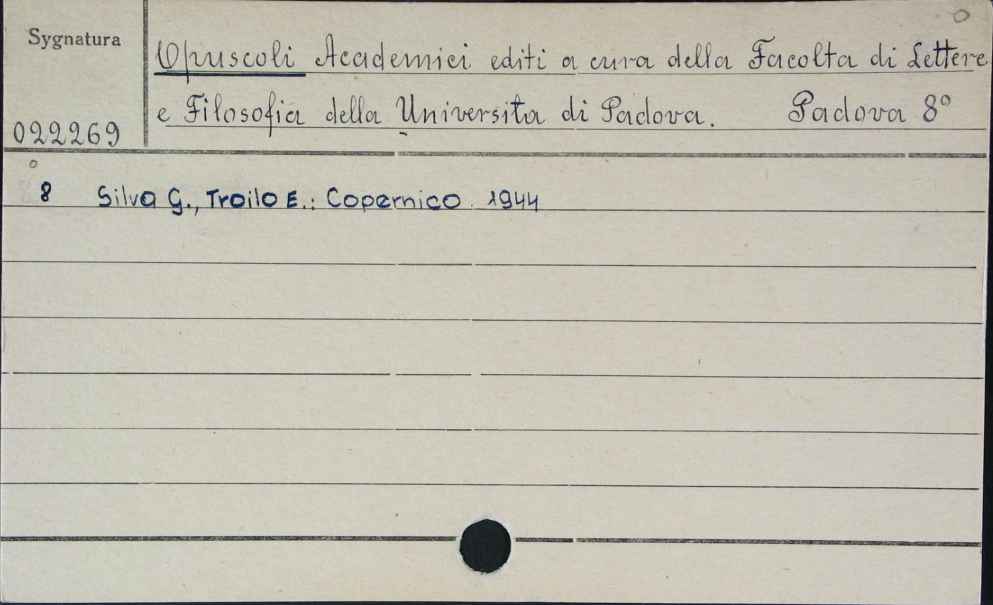 Sygnatura
Opuscoli Academici editi a cura della Facolta di Lettere
e Filosofia della Universita di Padova. Padova 8°
022269
8 Silva G., Troilo E.: Copernico. 1944